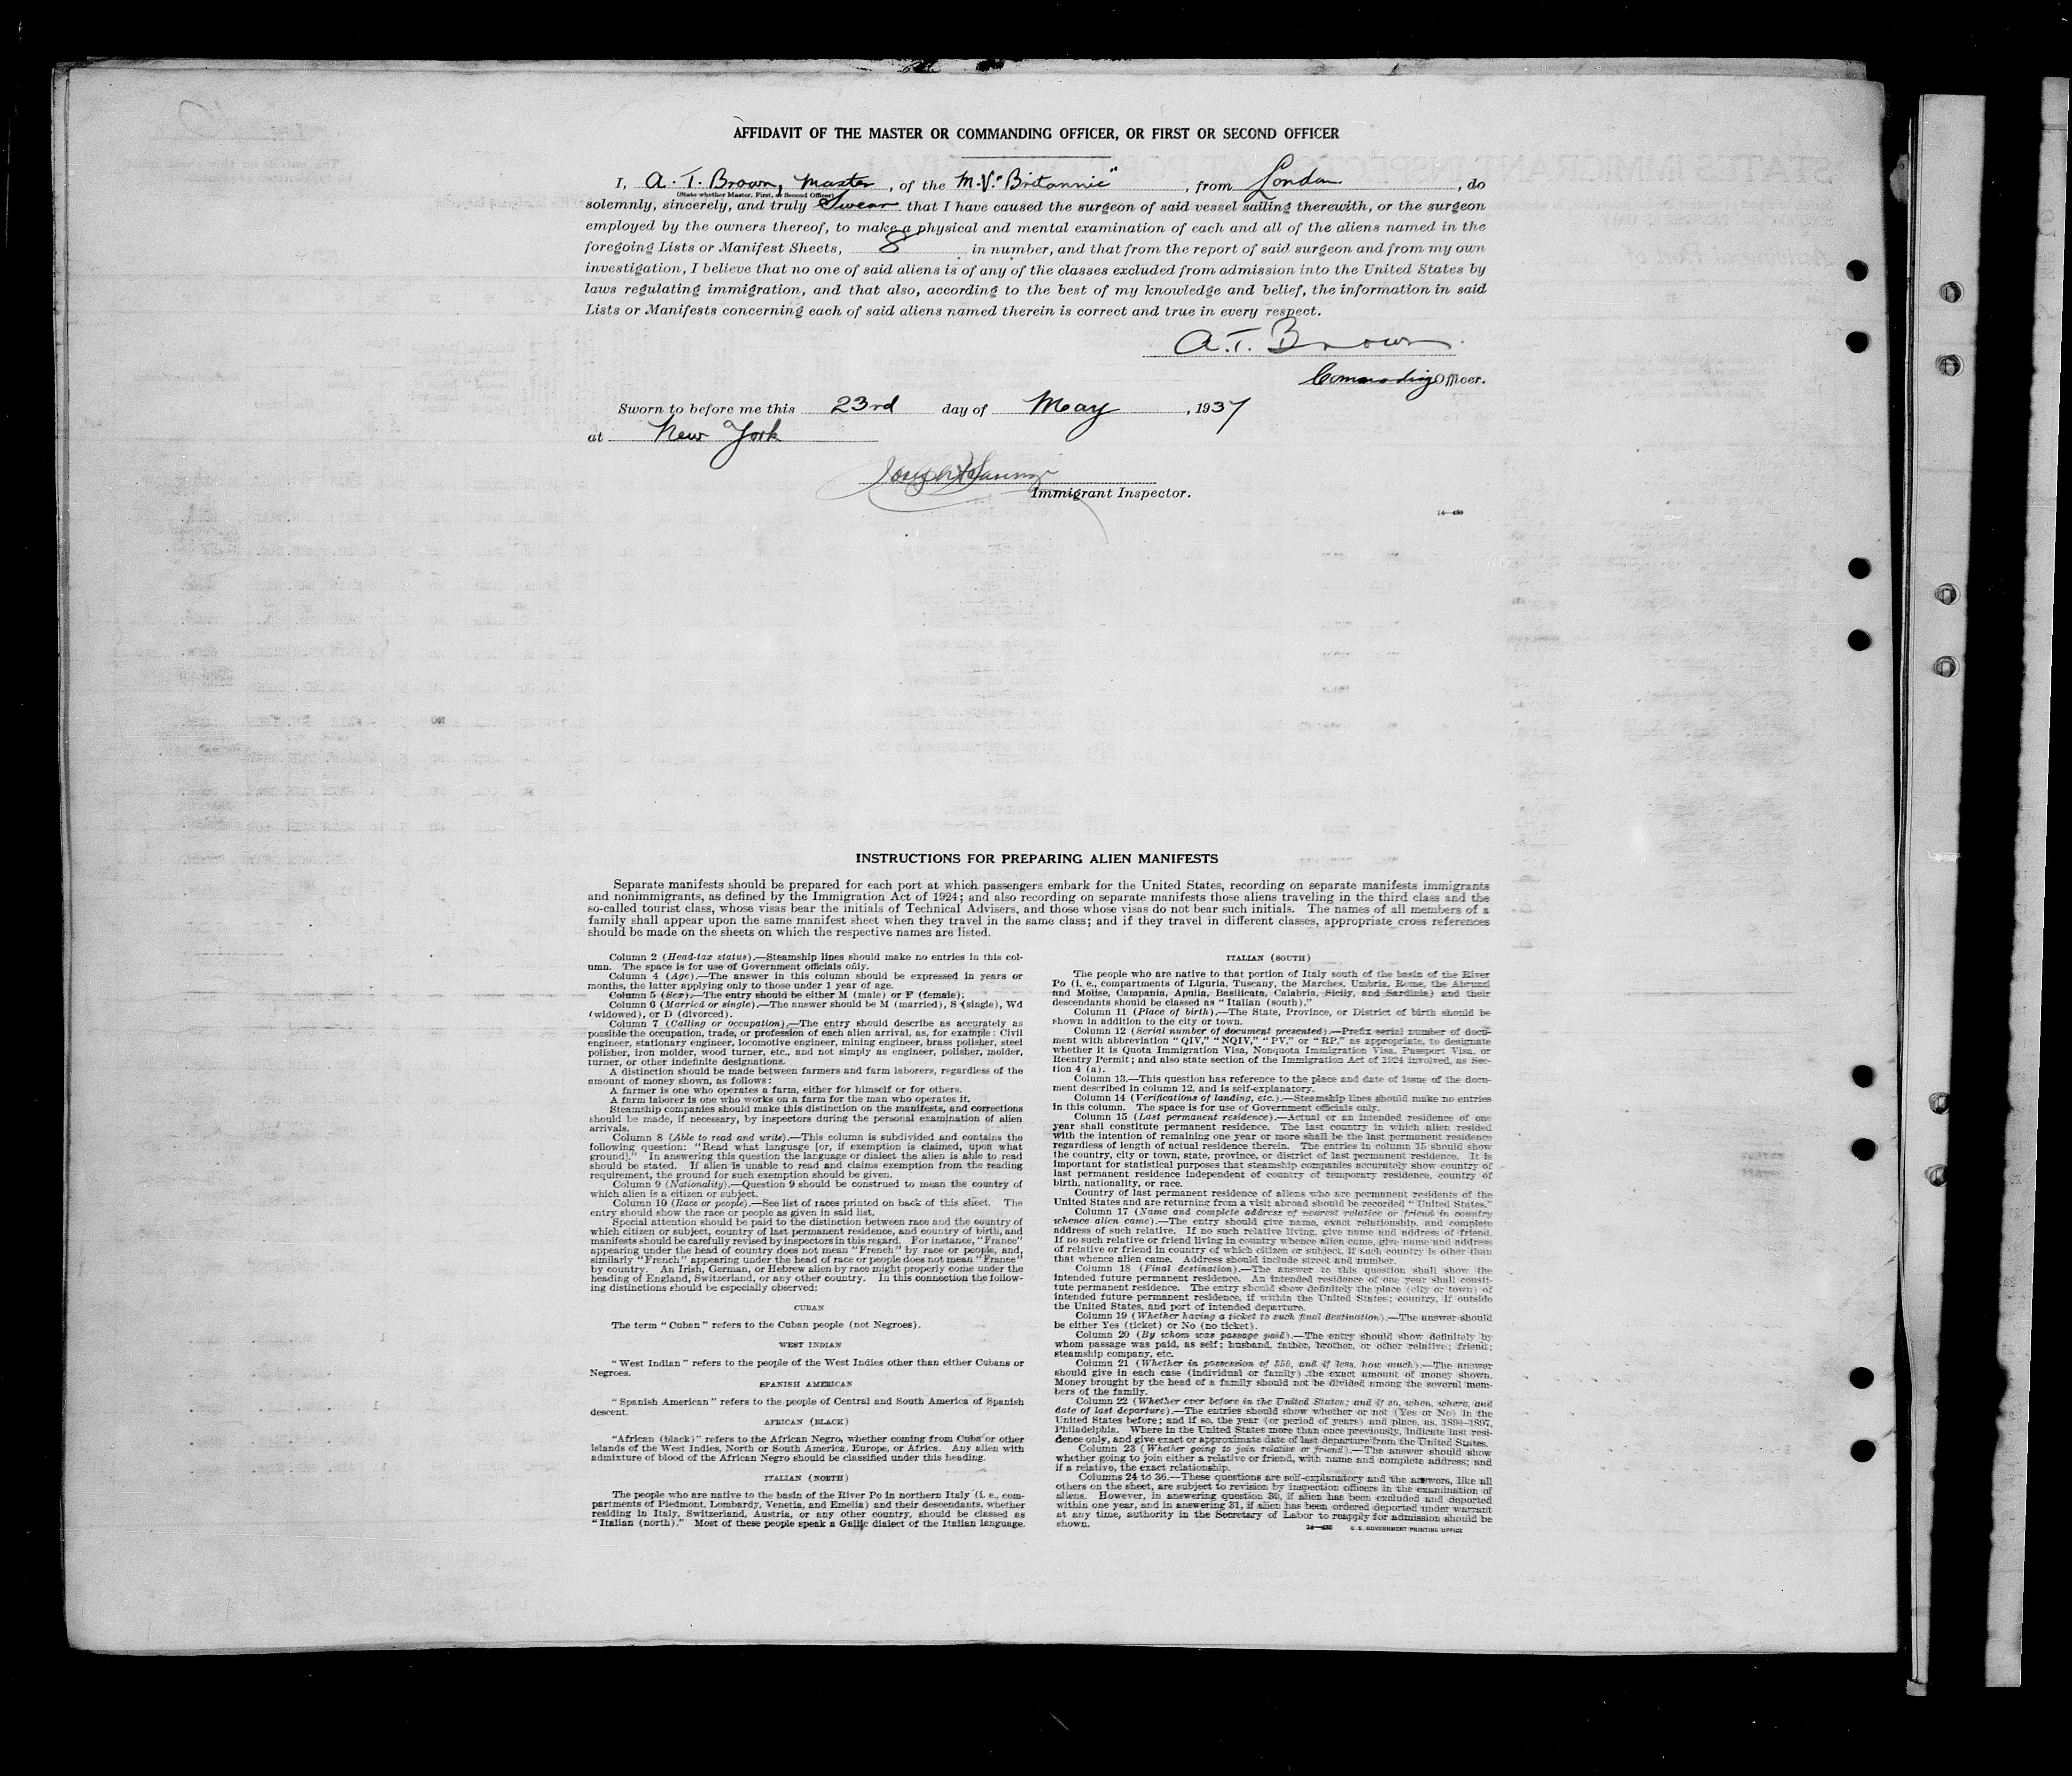 AFFIDAVIT OF THE MASTER OR COMMANDING OFFICER, OR FIRST OR SECOND OFFICER
I, A. T. Brown, Master, of the M.V. "Britannic", from London, do
(State whether Master, First, or Second Officer)
solemnly, sincerely, and truly Swear that I have caused the surgeon of said vessel sailing therewith, or the surgeon
employed by the owners thereof, to make a physical and mental examination of each and all of the aliens named in the
foregoing Lists or Manifest Sheets, 8 in number, and that from the report of said surgeon and from my own
investigation, I believe that no one of said aliens is of any of the classes excluded from admission into the United States by
laws regulating immigration, and that also, according to the best of my knowledge and belief, the information in said
Lists or Manifests concerning each of said aliens named therein is correct and true in every respect.
A. T. Brown
Commanding Officer.
Sworn to before me this 23rd day of May, 1937
at New York
Immigrant Inspector.
INSTRUCTIONS FOR PREPARING ALIEN MANIFESTS
Separate manifests should be prepared for each port at which passengers embark for the United States, recording on separate manifests immigrants
and nonimmigrants, as defined by the Immigration Act of 1924; and also recording on separate manifests those aliens traveling in the third class and the
so-called tourist class, whose visas bear the initials of Technical Advisers, and those whose visas do not bear such initials. The names of all members of a
family shall appear upon the same manifest sheet when they travel in the same class; and if they travel in different classes, appropriate cross references
should be made on the sheets on which the respective names are listed.
Column 2 (Head-tax status).—Steamship lines should make no entries in this col-
umn. The space is for use of Government officials only.
Column 4 (Age).—The answer in this column should be expressed in years or
months, the latter applying only to those under 1 year of age.
Column 5 (Sex).—The entry should be either M (male) or F (female).
Column 6 (Married or single).—The answer should be M (married), S (single), Wd
(widowed), or D (divorced).
Column 7 (Calling or occupation).—The entry should describe as accurately as
possible the occupation, trade, or profession of each alien arrival, as, for example: Civil
engineer, stationary engineer, locomotive engineer, mining engineer, brass polisher, steel
polisher, iron molder, wood turner, etc., and not simply as engineer, polisher, molder,
turner, or other indefinite designations.
A distinction should be made between farmers and farm laborers, regardless of the
amount of money shown, as follows:
A farmer is one who operates a farm, either for himself or for others.
A farm laborer is one who works on a farm for the man who operates it.
Steamship companies should make this distinction on the manifests, and corrections
should be made, if necessary, by inspectors during the personal examination of alien
arrivals.
Column 8 (Able to read and write).—This column is subdivided and contains the
following question: "Read what language [or, if exemption is claimed, upon what
ground]." In answering this question the language or dialect the alien is able to read
should be stated. If alien is unable to read and claims exemption from the reading
requirement, the ground for such exemption should be given.
Column 9 (Nationality).—Question 9 should be construed to mean the country of
which alien is a citizen or subject.
Column 10 (Race or people).—See list of races printed on back of this sheet. The
entry should show the race or people as given in said list.
Special attention should be paid to the distinction between race and the country of
which citizen or subject, country of last permanent residence, and country of birth, and
manifests should be carefully revised by inspectors in this regard. For instance, "France"
appearing under the head of country does not mean "French" by race or people, and,
similarly "French" appearing under the head of race or people does not mean "France"
by country. An Irish, German, or Hebrew alien by race might properly come under the
heading of England, Switzerland, or any other country. In this connection the follow-
ing distinctions should be especially observed:
CUBAN
The term "Cuban" refers to the Cuban people (not Negroes).
WEST INDIAN
"West Indian" refers to the people of the West Indies other than either Cubans or
Negroes.
SPANISH AMERICAN
"Spanish American" refers to the people of Central and South America of Spanish
descent.
AFRICAN (BLACK)
"African (black)" refers to the African Negro, whether coming from Cuba or other
islands of the West Indies, North or South America, Europe, or Africa. Any alien with
admixture of blood of the African Negro should be classified under this heading.
ITALIAN (NORTH)
The people who are native to the basin of the River Po in northern Italy (i. e., com-
partments of Piedmont, Lombardy, Venetia, and Emelia) and their descendants, whether
residing in Italy, Switzerland, Austria, or any other country, should be classed as
"Italian (north)." Most of these people speak a Gallic dialect of the Italian language.
ITALIAN (SOUTH)
The people who are native to that portion of Italy south of the basin of the River
Po (i. e., compartments of Liguria, Tuscany, the Marches, Umbria, Rome, the Abruzzi
and Molise, Campania, Apulia, Basilicata, Calabria, Sicily, and Sardinia) and their
descendants should be classed as "Italian (south)."
Column 11 (Place of birth).—The State, Province, or District of birth should be
shown in addition to the city or town.
Column 12 (Serial number of document presented).—Prefix serial number of docu-
ment with abbreviation "QIV," "NQIV," "PV," or "RP," as appropriate, to designate
whether it is Quota Immigration Visa, Nonquota Immigration Visa, Passport Visa, or
Reentry Permit; and also state section of the Immigration Act of 1924 involved, as Sec-
tion 4 (a).
Column 13.—This question has reference to the place and date of issue of the docu-
ment described in column 12, and is self-explanatory.
Column 14 (Verifications of landing, etc.).—Steamship lines should make no entries
in this column. The space is for use of Government officials only.
Column 15 (Last permanent residence).—Actual or an intended residence of one
year shall constitute permanent residence. The last country in which alien resided
with the intention of remaining one year or more shall be the last permanent residence
regardless of length of actual residence therein. The entries in column 15 should show
the country, city or town, state, province, or district of last permanent residence. It is
important for statistical purposes that steamship companies accurately show country of
last permanent residence independent of country of temporary residence, country of
birth, nationality, or race.
Country of last permanent residence of aliens who are permanent residents of the
United States and are returning from a visit abroad should be recorded "United States."
Column 17 (Name and complete address of nearest relative or friend in country
whence alien came).—The entry should give name, exact relationship, and complete
address of such relative. If no such relative living, give name and address of friend.
If no such relative or friend living in country whence alien came, give name and address
of relative or friend in country of which citizen or subject, if such country is other than
that whence alien came. Address should include street and number.
Column 18 (Final destination).—The answer to this question shall show the
intended future permanent residence. An intended residence of one year shall consti-
tute permanent residence. The entry should show definitely the place (city or town) of
intended future permanent residence, if within the United States; country, if outside
the United States, and port of intended departure.
Column 19 (Whether having a ticket to such final destination).—The answer should
be either Yes (ticket) or No (no ticket).
Column 20 (By whom was passage paid).—The entry should show definitely by
whom passage was paid, as self; husband, father, brother, or other relative; friend;
steamship company, etc.
Column 21 (Whether in possession of $50, and if less, how much).—The answer
should give in each case (individual or family) the exact amount of money shown.
Money brought by the head of a family should not be divided among the several mem-
bers of the family.
Column 22 (Whether ever before in the United States; and if so, when, where, and
date of last departure).—The entries should show whether or not (Yes or No) in the
United States before; and if so, the year (or period of years) and place, as, 1894–1897,
Philadelphia. Where in the United States more than once previously, indicate last resi-
dence only, and give exact or approximate date of last departure from the United States.
Column 23 (Whether going to join relative or friend).—The answer should show
whether going to join either a relative or friend, with name and complete address; and
if a relative, the exact relationship.
Columns 24 to 36.—These questions are self-explanatory and the answers, like all
others on the sheet, are subject to revision by inspection officers in the examination of
aliens. However, in answering question 30, if alien has been excluded and deported
within one year, and in answering 31, if alien has been ordered deported under warrant
at any time, authority in the Secretary of Labor to reapply for admission should be
shown.
U.S. GOVERNMENT PRINTING OFFICE